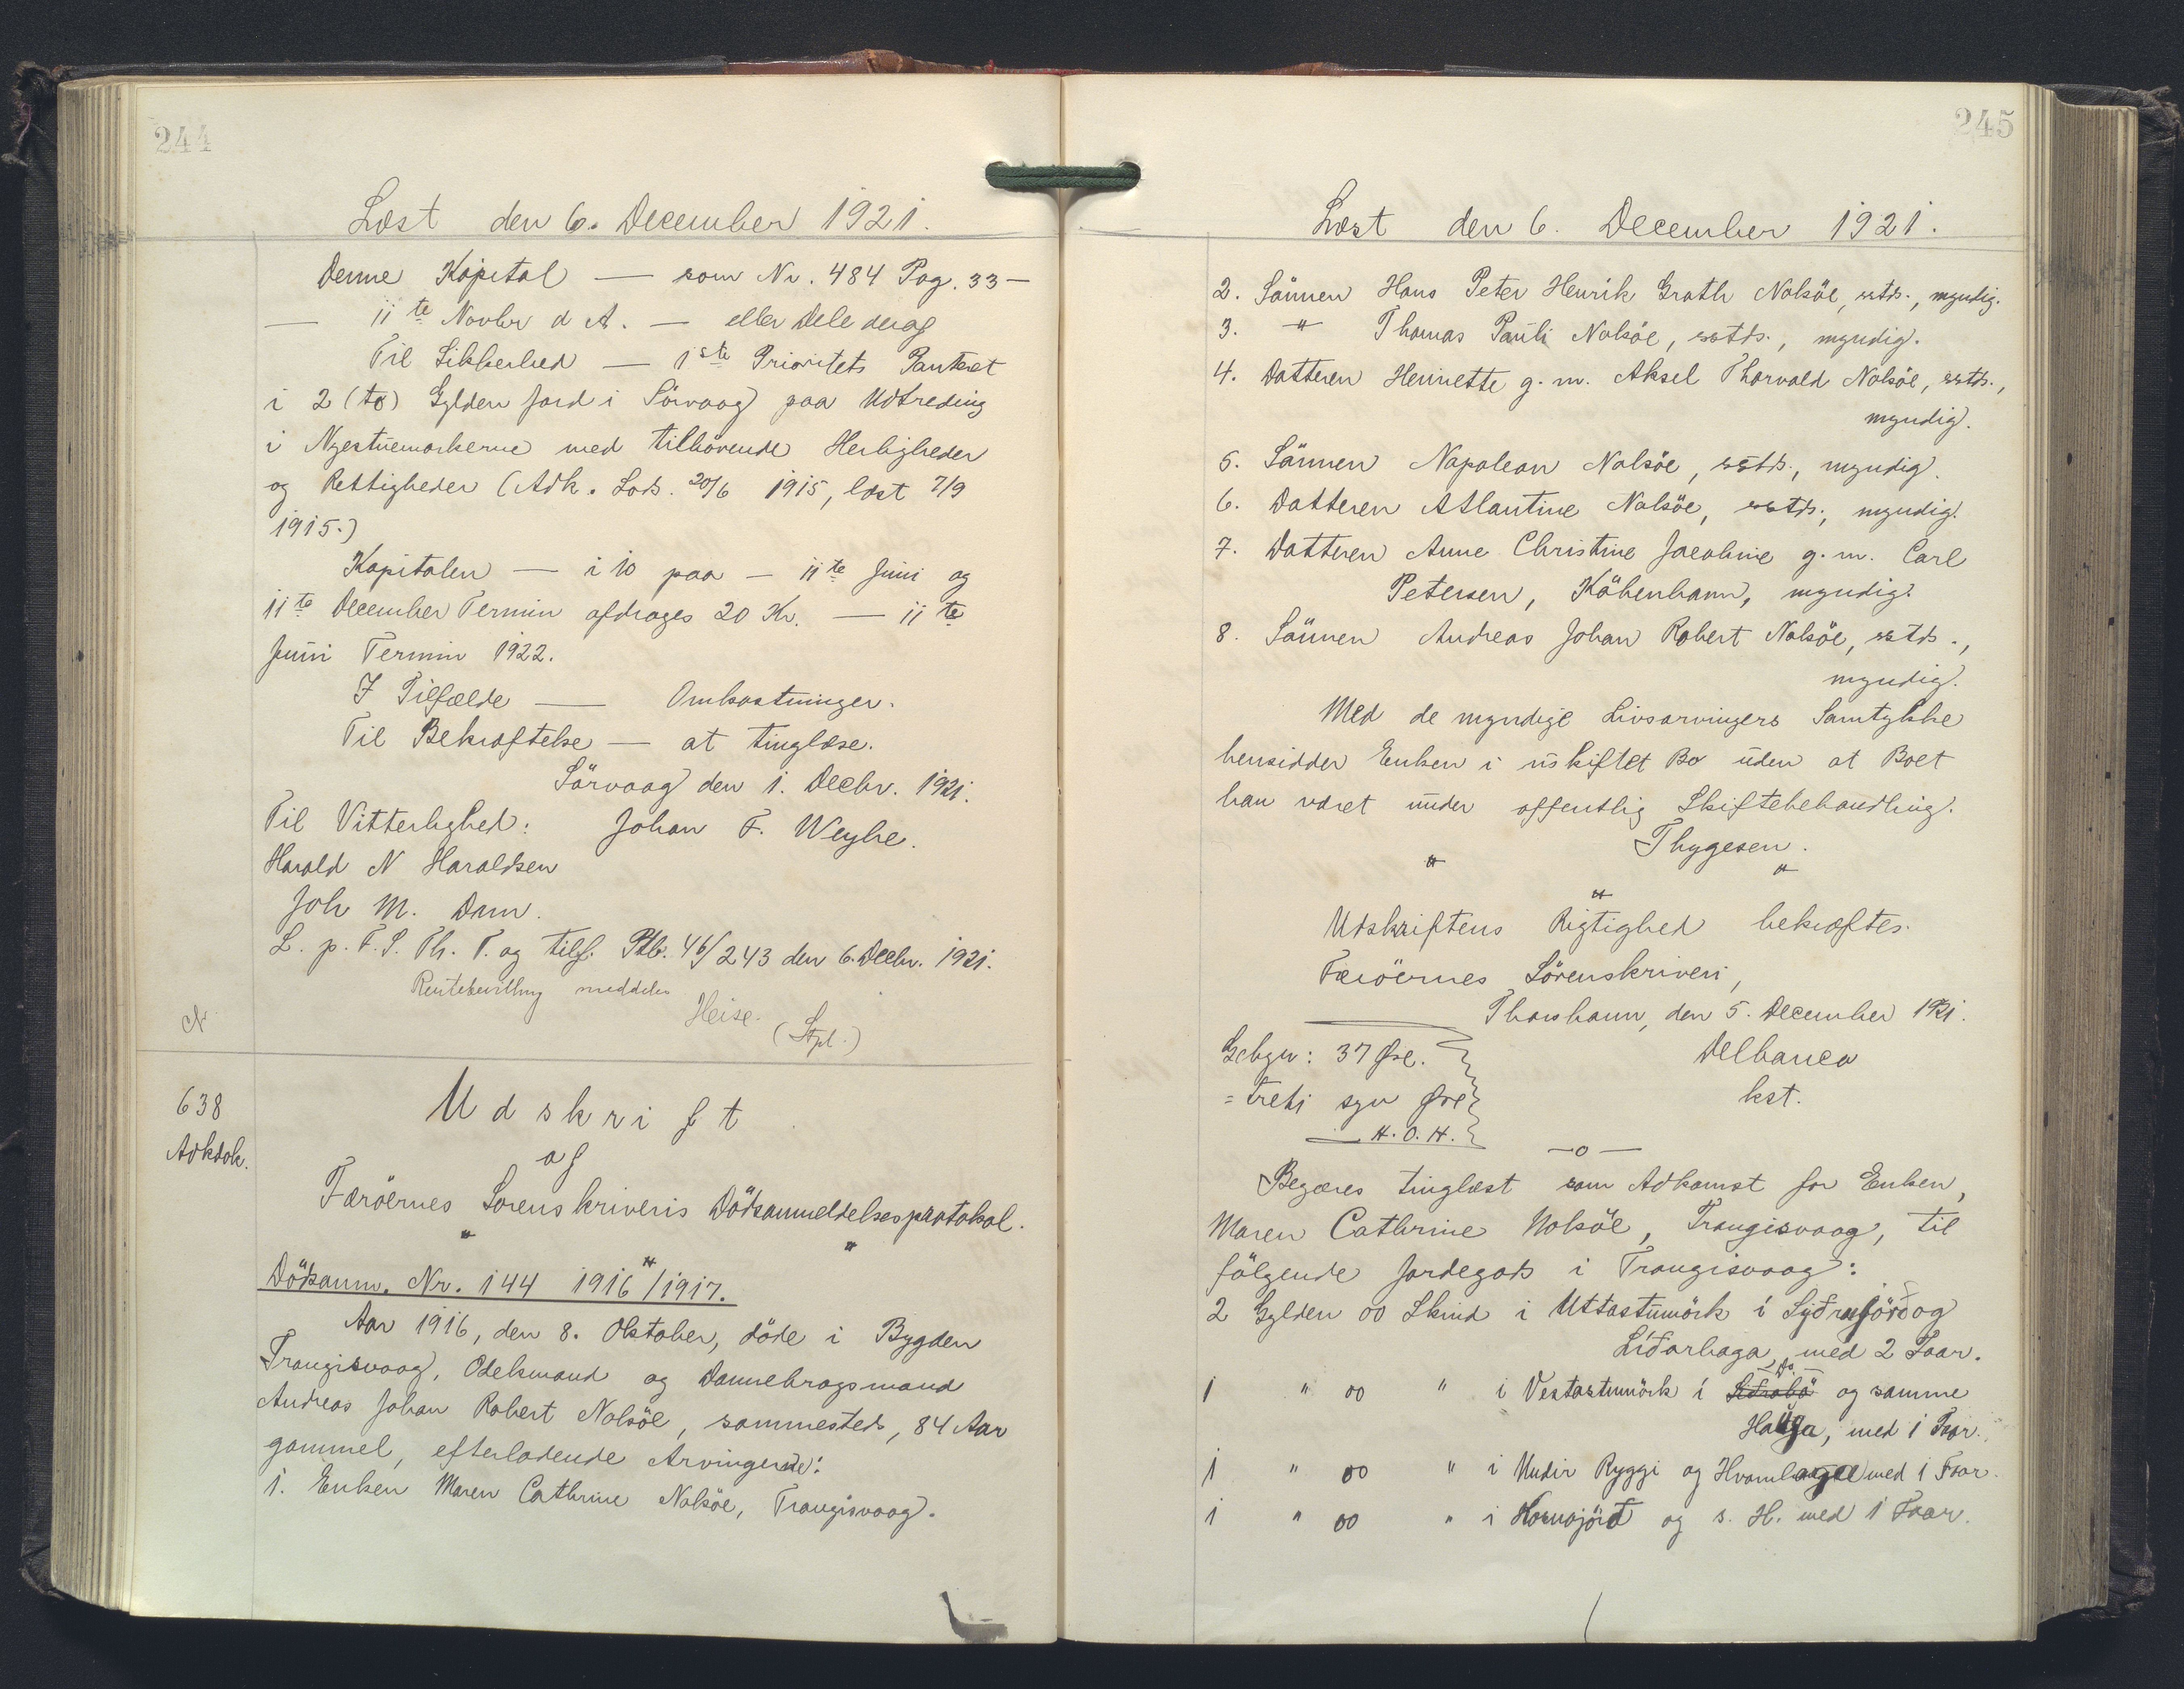 244
Læst den 6. December 1921.
Denne Kapital — som Nr. 484 Pag. 33 —
— 11te Novbr d. A. — eller Dele deraf
Til Sikkerhed — 1ste Prioritets Panteret
i 2 (to) Gylden Jord i Sörvaag paa Udtreding
i Nyestuemarkerne med tilhörende Herligheder
og Rettigheder (Adk. Lods. 20/6 1915, læst 7/9
1915.)
Kapitalen — i 10 paa — 11te Juni og
11te December Termin afdrages 20 Kr. — 11te
Juni Termin 1922.
I Tilfælde — Omkostninger.
Til Bekræftelse — at tinglæse.
Sörvaag den 1. Decbr. 1921.
Til Vitterlighed: Johan F. Weyhe.
Harald N Haraldsen
Joh M. Dam.
L. p. F. S. Th. T. og tilf. Ptb. 46/243 den 6. Decbr. 1921.
Rentebevilling meddeles
Heise.
(Stpl.)
N
638
Adkdok.
Udskrift
af
Færöernes Sorenskriveris Dödsanmeldelsesprotokol.
" " "
Dödsanm. Nr. 144 1916/1917.
Aar 1916, den 8. Oktober, döde i Bygden
Trangisvaag, Odelsmand og Dannebrogsmand
Andreas Johan Robert Nolsöe, sammesteds, 84 Aar
gammel, efterladende Arvingerne:
1. Enken Maren Cathrine Nolsöe, Trangisvaag.
245
Læst den 6. December 1921.
2. Sönnen Hans Peter Henrik Groth Nolsöe, sstds., myndig.
3. " Thomas Pauli Nolsöe, sstds., myndig.
4. Datteren Henriette g. m. Aksel Thorvald Nolsöe, sstds.,
myndig.
5. Sönnen Napoleon Nolsöe, sstds., myndig.
6. Datteren Atlantine Nolsöe, sstds., myndig.
7. Datteren Anne Christine Jacobine g. m. Carl
Petersen, Köbenhavn, myndig.
8. Sönnen Andreas Johan Robert Nolsöe, sstds.,
myndig.
Med de myndige Livsarvingers Samtykke
hensidder Enken i uskiftet Bo uden at Boet
har været under offentlig Skiftebehandling.
Thygesen.
" " "
Udskriftens Rigtighed bekræftes.
Færöernes Sörenskriveri,
Thorshavn, den 5. December 1921.
Gebyr: 37 Øre.
Delbanco
= treti syv Øre
kst.
H. O. H.
—o—
Begæres tinglæst som Adkomst for Enken,
Maren Cathrine Nolsöe, Trangisvaag, til
fölgende Jordegods i Trangisvaag:
2 Gylden 00 Skind i Uttastumörk í Syðrugörð og
Líðarhaga, med 2 Faar.
1 " 00 " i Vestastumörk í og samme
Hauga, med 1 Faar.
1 " 00 " i Undir Ryggi og Hvamhaga med 1 Faar.
1 " 00 " i Kornojörð og s. H. med 1 Faar.